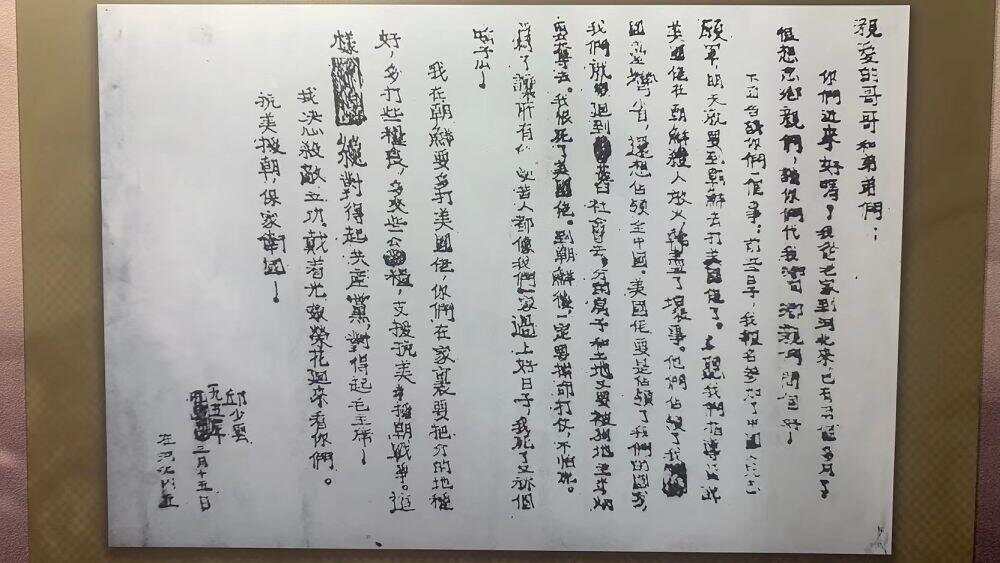 親愛的哥哥和弟弟們：
你們近來好嗎？我從老家到河北來，已有
很想念鄉親們，請你們代我 鄉親們問個好！
下面告訴你們一個事：前些日子，我報名參加了中國
願軍，明天就要到朝鮮去打美國佬了。 我們指導員說
美國佬在朝鮮殺人放火 了壞事。他們佔領了我
國臺灣省，還想佔領全中國。美國佬要是佔領了我們的國家，
我們就 回到 社會去，分的房子和土地又要被 地主
奪去。我恨死了美國佬。到朝鮮後，一定要 打仗，不怕死。
了讓所有 苦人都像我們一家過上好日子，我死了又
我在朝鮮要多打美國佬，你們在家裏要把分的地種
好，多打些糧食，多交些公糧，支援抗美援朝戰爭。這
樣 纔對得起共産黨，對得起毛主席！
我决心殺敵立功，戴着光榮花回來看你們。
抗美援朝，保家衛國！
邱少雲
一九五 年
三月十五日
在河北